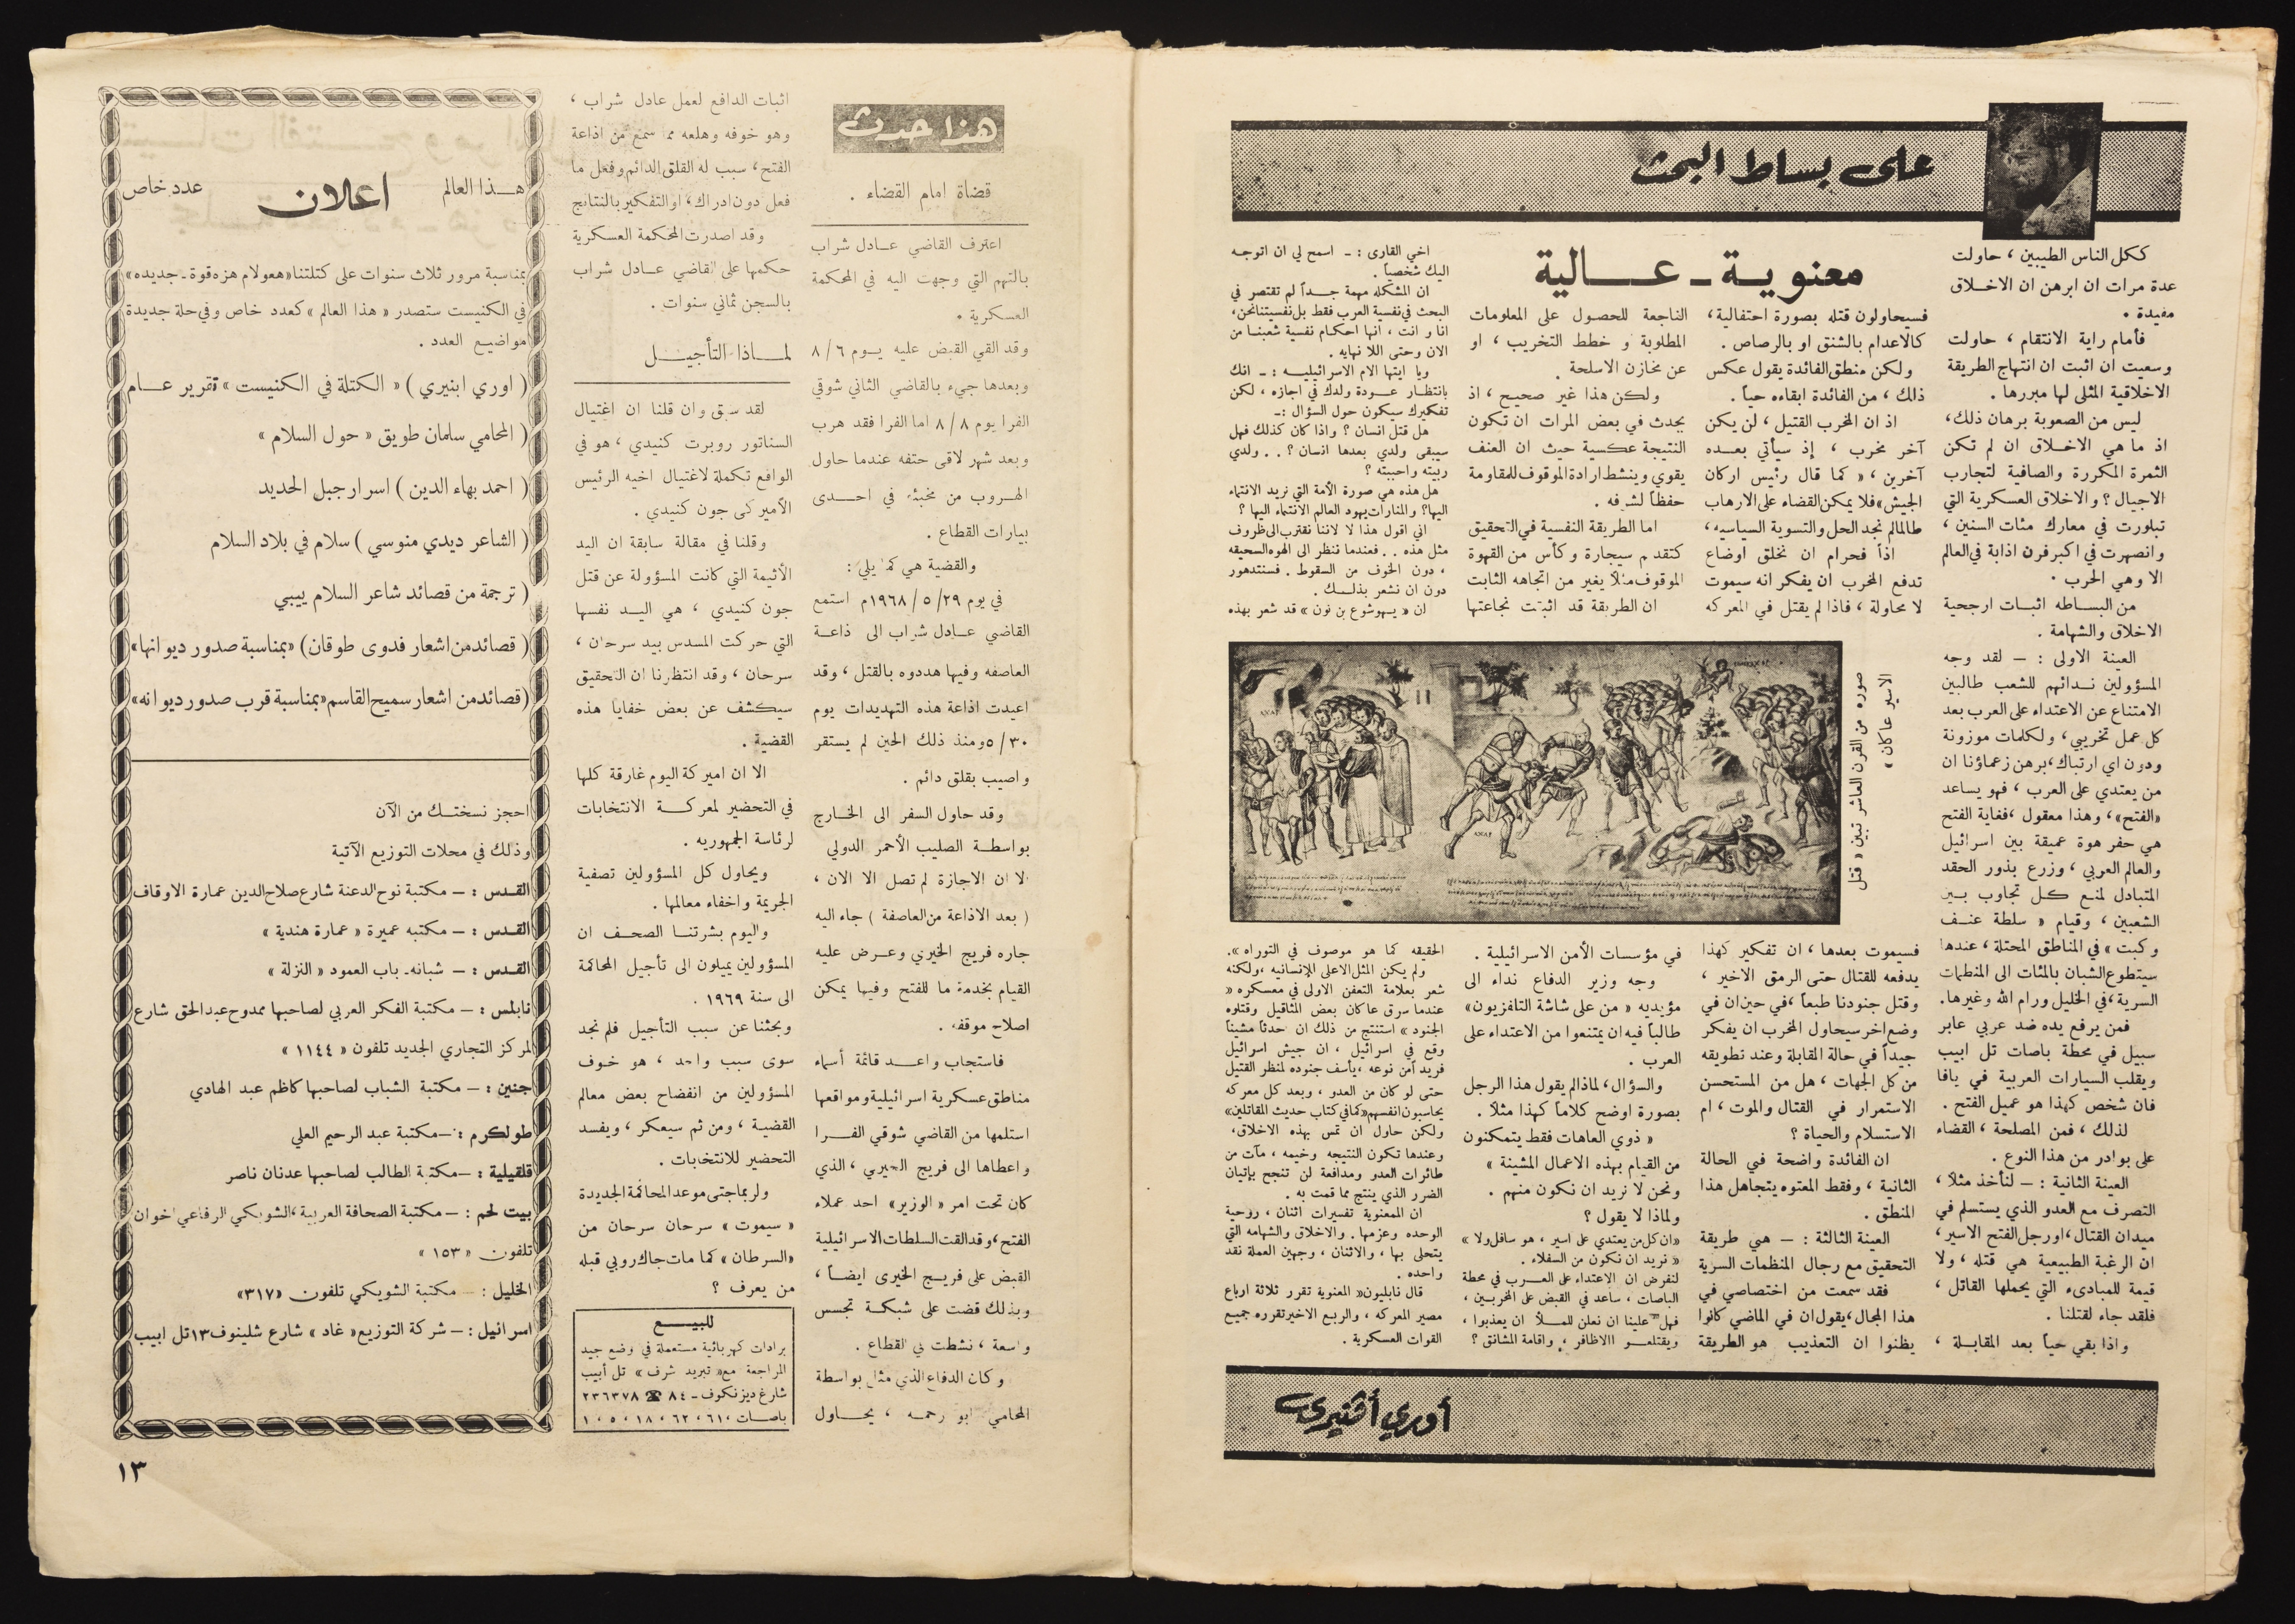 على بساط البحث
معنوية ـ عـــالية
ككل الناس الطيبين ، حاولت
عدة مرات ان ابرهن ان الاخـلاق
مفيدة .
فأمام راية الانتقام ، حاولت
وسعيت ان اثبت ان انتهاج الطريقة
الاخلاقية المثلى لها مبررها .
ليس من الصعوبة برهان ذلك ،
اذ ما هي الاخـلاق ان لم تكن
الثمرة المكررة والصافية لتجارب
الاجيال ؟ والاخلاق العسكرية التي
تبلورت في معارك مئات السنين ،
وانصهرت في اكبر فرن اذابة في العالم
الا وهي الحرب .
من البساطه اثبات ارجحية
الاخلاق والشهامة .
العينة الاولى : ـ لقد وجه
المسؤولين نـدائهم للشعب طالبين
الامتناع عن الاعتداء على العرب بعد
كل عمل تخريبي ، ولكلمات موزونة
ودون اي ارتباك ، برهن زعماؤنا ان
من يعتدي على العرب ، فهو يساعد
«الفتح» ، وهذا معقول ، فغاية الفتح
هي حفر هوة عميقة بين اسرائيل
والعالم العربي ، وزرع بذور الحقد
المتبادل لمنع كـل تجاوب بـين
الشعبين ، وقيام « سلطة عنـف
وكبت » في المناطق المحتلة ، عندها
سيتطوع الشبان بالمئات الى المنظمات
السرية ، في الخليل ورام الله وغيرها .
فمن يرفع يده ضد عربي عابر
سبيل في محطة باصات تل ابيب
ويقلب السيارات العربية في يافا
فان شخص كهذا هو عميل الفتح .
لذلك ، فمن المصلحة ، القضاء
على بوادر من هذا النوع .
العينة الثانية : ـ لنأخذ مثلاً ،
التصرف مع العدو الذي يستسلم في
ميدان القتال ، اورجل الفتح الاسير ،
ان الرغبة الطبيعية هي قتله ، ولا
قيمة للمبادىء التي يحملها القاتل ،
فلقد جاء لقتلنا .
واذا بقي حياً بعد المقابـلة ،
فسيحاولون قتله بصورة احتفالية ،
كالاعدام بالشنق او بالرصاص .
ولكن منطق الفائدة يقول عكس
ذلك ، من الفائدة ابقاءه حياً .
اذ ان المخرب القتيل ، لن يكن
آخر مخرب ، إذ سيأتي بعـده
آخرين ، « كما قال رئيس اركان
الجيش » فلا يمكن القضاء على الارهاب
طالما لم نجد الحل والتسوية السياسيه ،
اذاً فحرام ان نخلق اوضاع
تدفع المخرب ان يفكر انه سيموت
لا محاولة ، فاذا لم يقتل في المعركه
فسيموت بعدها ، ان تفكير كهذا
يدفعه للقتال حتى الرمق الاخير ،
وقتل جنودنا طبعاً ، في حين ان في
وضع اخر سيحاول المخرب ان يفكر
جيداً في حالة المقابلة وعند تطويقه
من كل الجهات ، هل من المستحسن
الاستمرار في القتال والموت ، ام
الاستسلام والحياة ؟
ان الفائدة واضحة في الحالة
الثانية ، وفقط المعتوه يتجاهل هذا
المنطق .
العينة الثالثة : ـ هي طريقة
التحقيق مع رجال المنظمات السرية
فقد سمعت من اختصاصي في
هذا المجال ، يقول ان في الماضي كانوا
يظنوا ان التعذيب هو الطريقة
الناجعة للحصول على المعلومات
المطلوبة و خطط التخريب ، او
عن مخازن الاسلحة .
ولكن هذا غير صحيح ، اذ
يحدث في بعض المرات ان تكون
النتيجة عكسية حيث ان العنف
يقوي وينشط ارادة الموقوف للمقاومة
حفظاً لشرفه .
اما الطريقة النفسية في التحقيق
كتقديم سيجارة وكأس من القهوة
الموقوف مثلاً يغير من اتجاهه الثابت
ان الطريقة قد اثبتت نجاعتها
في مؤسسات الأمن الاسرائيلية .
وجه وزير الدفاع نداء الى
مؤيديه « من على شاشة التلفزيون»
طالباً فيه ان يمتنعوا من الاعتداء على
العرب .
والسؤال ، لماذا لم يقول هذا الرجل
بصورة اوضح كلاماً كهذا مثلاً .
« ذوي العاهات فقط يتمكنون
من القيام بهذه الاعمال المشينة »
ونحن لا نريد ان نكون منهم .
ولماذا لا يقول ؟
«ان كل من يعتدي على اسير ، هو سافل ولا »
« نريد ان نكون من السفلاء .
لنفرض ان الاعتداء على العـرب في محطة
الباصات ، ساعد في القبض على المخربين ،
فهل علينا ان نعلن للمـلأ ان يعذبوا ،
ويقتلعـوا الاظافر ، واقامة المشانق ؟
اخي القارى : ـ اسمح لي ان اتوجـه
اليك شخصياً .
ان المشكله مهمة جـداً لم تقتصر في
البحث في نفسية العرب فقط بل نفسيتنا نحن ،
انا و انت ، انها احكـام نفسية شعبنـا من
الان وحتى اللا نهايه .
ويا ايتها الام الاسرائيليـه : ـ انك
بانتظـار عـودة ولدك في اجازه ، لكن
تفكيرك سيكون حول السؤال : ـ
هل قتل انسان ؟ واذا كان كذلك فهل
سيبقى ولدي بعدها انسان ؟ . . ولدي
ربيته واحببته ؟
هل هذه هي صورة الأمة التي نريد الانتماء
اليها ؟ والمنارات يهود العالم الانتماء اليها ؟
اني اقول هذا لا لاننا نقترب الى ظروف
مثل هذه . . فعندما ننظر الى الهوه السحيقه
، دون الخوف من السقوط . فسنتدهور
دون ان نشعر بذلـك .
ان « يهوشوع بن نون » قد شعر بهذه
الحقيقه كما هو موصوف في التوراه ».
ولم يكن المثل الاعلى للإنسانيه ، ولكنه
شعر بعلامة التعفن الاولى في معسكره «
عندما سرق عاكان بعض المثاقيل وقتلوه
الجنود » استنتج من ذلك ان حدثاً مشيناً
وقع في اسرائيل ، ان جيش اسرائيل
فريد من نوعه ، يأسف جنوده لمنظر القتيل
حتى لو كان من العدو ، وبعد كل معركه
يحاسبون انفسهم «كما في كتاب حديث المقاتلين»
ولكن حاول ان تمس بهذه الاخلاق ،
وعندها تكون النتيجه وخيمه ، مآت من
طائرات العدو ومدافعة لن تنجح بإتيان
الضرر الذي ينتج مما قمت به .
ان الممعنوية تفسيرات اثنان ، روحية
الوحده وعزمها . والاخلاق والشهامه التي
يتحلى بها ، والاثنان ، وجهين العملة نقد
واحده .
قال نابليون « المعنوية تقرر ثلاثة ارباع
مصير المعركه ، والربع الاخير تقرره جميع
القوات العسكرية .
صوره من القرن العاشر تبين « قتل
الاسير عاكان »
أوري أفنيري
هذا حدث
قضاة امام القضاء .
اعترف القاضي عـادل شراب
بالتهم التي وجهت اليه في المحكمة
العسكرية .
وقد القي القبض عليه يـوم ٨/٦
وبعدها جيء بالقاضي الثاني شوقي
الفرا يوم ٨/٨ اما الفرا فقد هرب
وبعد شهر لاقى حتفه عندما حاول
الهـروب من مخبئه في احـدى
بيارات القطاع .
والقضية هي كما يلي :
في يوم ١٩٦٨/٥/٢٩م استمع
القاضي عـادل شراب الى ذاعـة
العاصفه وفيها هددوه بالقتل ، وقد
اعيدت اذاعة هذه التهديدات يوم
٥/٣٠ ومنذ ذلك الحين لم يستقر
واصيب بقلق دائم .
وقد حاول السفر الى الخـارج
بواسطـة الصليب الأحمر الدولي
الا ان الاجازة لم تصل الا الان ،
( بعد الاذاعة من العاصفة ) جاء اليه
جاره فريج الخيري وعـرض عليه
القيام بخدمة ما للفتح وفيها يمكن
اصلاح موقفه .
فاستجاب واعـد قائمة أسماء
مناطق عسكرية اسرائيلية ومواقعها
استلمها من القاضي شوقي الفـرا
واعطاها الى فريج الخيري ، الذي
كان تحت امر « الوزير» احد عملاء
الفتح ، وقد القت السلطات الاسرائيلية
القبض على فريـج الخيرى ايضـاً ،
وبذلك قضت على شبكـة تجسس
واسعة ، نشطت في القطاع .
وكان الدفاع الذي مثل بواسطة
المحامي ابو رحمـه ، يحـاول
اثبات الدافع لعمل عادل شراب ،
وهو خوفه وهلعه مما سمع من اذاعة
الفتح ، سبب له القلق الدائم وفعل ما
فعل دون ادراك ، او التفكير بالنتائج
وقد اصدرت المحكمة العسكرية
حكمها على القاضي عـادل شراب
بالسجن ثماني سنوات .
لمـاذا التأجيـل
لقد سبق وان قلنا ان اغتيال
السناتور روبرت كنيدي ، هو في
الواقع تكملة لاغتيال اخيه الرئيس
الأميركى جون كنيدي .
وقلنا في مقالة سابقة ان اليد
الأثيمة التي كانت المسؤولة عن قتل
جون كنيدي ، هي اليـد نفسها
التي حركت المسدس بيد سرحان ،
سرحان ، وقد انتظرنا ان التحقيق
سيكشف عن بعض خفايا هذه
القضية .
الا ان اميركة اليوم غارقة كلها
في التحضير لمعركـة الانتخابات
لرئاسة الجمهوريه .
ويحاول كل المسؤولين تصفية
الجريمة واخفاء معالمها .
واليوم بشرتنـا الصحـف ان
المسؤولين يميلون الى تأجيل المحاكمة
الى سنة ١٩٦٩ .
وبحثنا عن سبب التأجيل فلم نجد
سوى سبب واحد ، هو خـوف
المسؤولين من انفضاح بعض معالم
القضيـة ، ومن ثم سيعكر ، ويفسد
التحضير للانتخابات .
ولربما حتى موعد المحاكمة الجديدة
« سيموت » سرحان سرحان من
«السرطان» كما مات جاك روبي قبله
من يعرف ؟
للبيــع
برادات كهربائية مستعملة في وضع جيد
المراجعة مع « تبريد شرف » تل أبيب
شارع ديزنكوف ـ ٨٤ ☎ ٢٣٦٣٧٨
باصـات ، ٦١ ، ٦٢ ، ١٨ ، ٥ ، ١
هـذا العالم
اعلان
عدد خاص
بمناسبة مرور ثلاث سنوات على كتلتنا « هعولام هزه قوة ـ جديده»
في الكنيست ستصدر « هذا العالم » كعدد خاص وفي حلة جديدة
مواضيع العدد .
( اوري ابنيري ) « الكتلة في الكنيست » تقرير عـام
( المحامي سلمان طويق « حول السلام »
( احمد بهاء الدين ) اسرار جبل الحديد
( الشاعر ديدي منوسي ) سلام في بلاد السلام
( ترجمة من قصائد شاعر السلام ييبي
( قصائد من اشعار فدوى طوقان) «بمناسبة صدور ديوانها»
(قصائد من اشعار سميح القاسم «بمناسبة قرب صدور ديوانه»
احجز نسختـك من الآن
وذلك في محلات التوزيع الآتية
القـدس : ـ مكتبة نوح الدعنة شارع صلاح الدين عمارة الاوقاف
القـدس : ـ مكتبه عميرة « عمارة هندية »
القـدس : ـ شبانه ـ باب العمود « النزلة »
نابلس : ـ مكتبة الفكر العربي لصاحبها ممدوح عبد الحق شارع
المركز التجاري الجديد تلفون « ١١٤٤ »
جنين : ـ مكتبة الشباب لصاحبها كاظم عبد الهادي
طولكرم : ـ مكتبة عبد الرحيم العلي
قلقيلية : ـ مكتبة الطالب لصاحبها عدنان ناصر
بيت لحم : ـ مكتبة الصحافة العربية ، الشويكي الرفاعي اخوان
تلفون « ١٥٣ »
الخليل : ـ مكتبة الشويكي تلفون «٣١٧»
اسرائيل : ـ شركة التوزيع « غاد » شارع شلينوف ١٣ تل ابيب
١٣